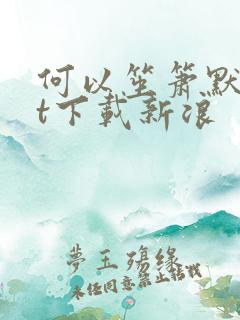 何以笙箫默
t下载新浪
梦玉殇缘
未经同意禁止转载